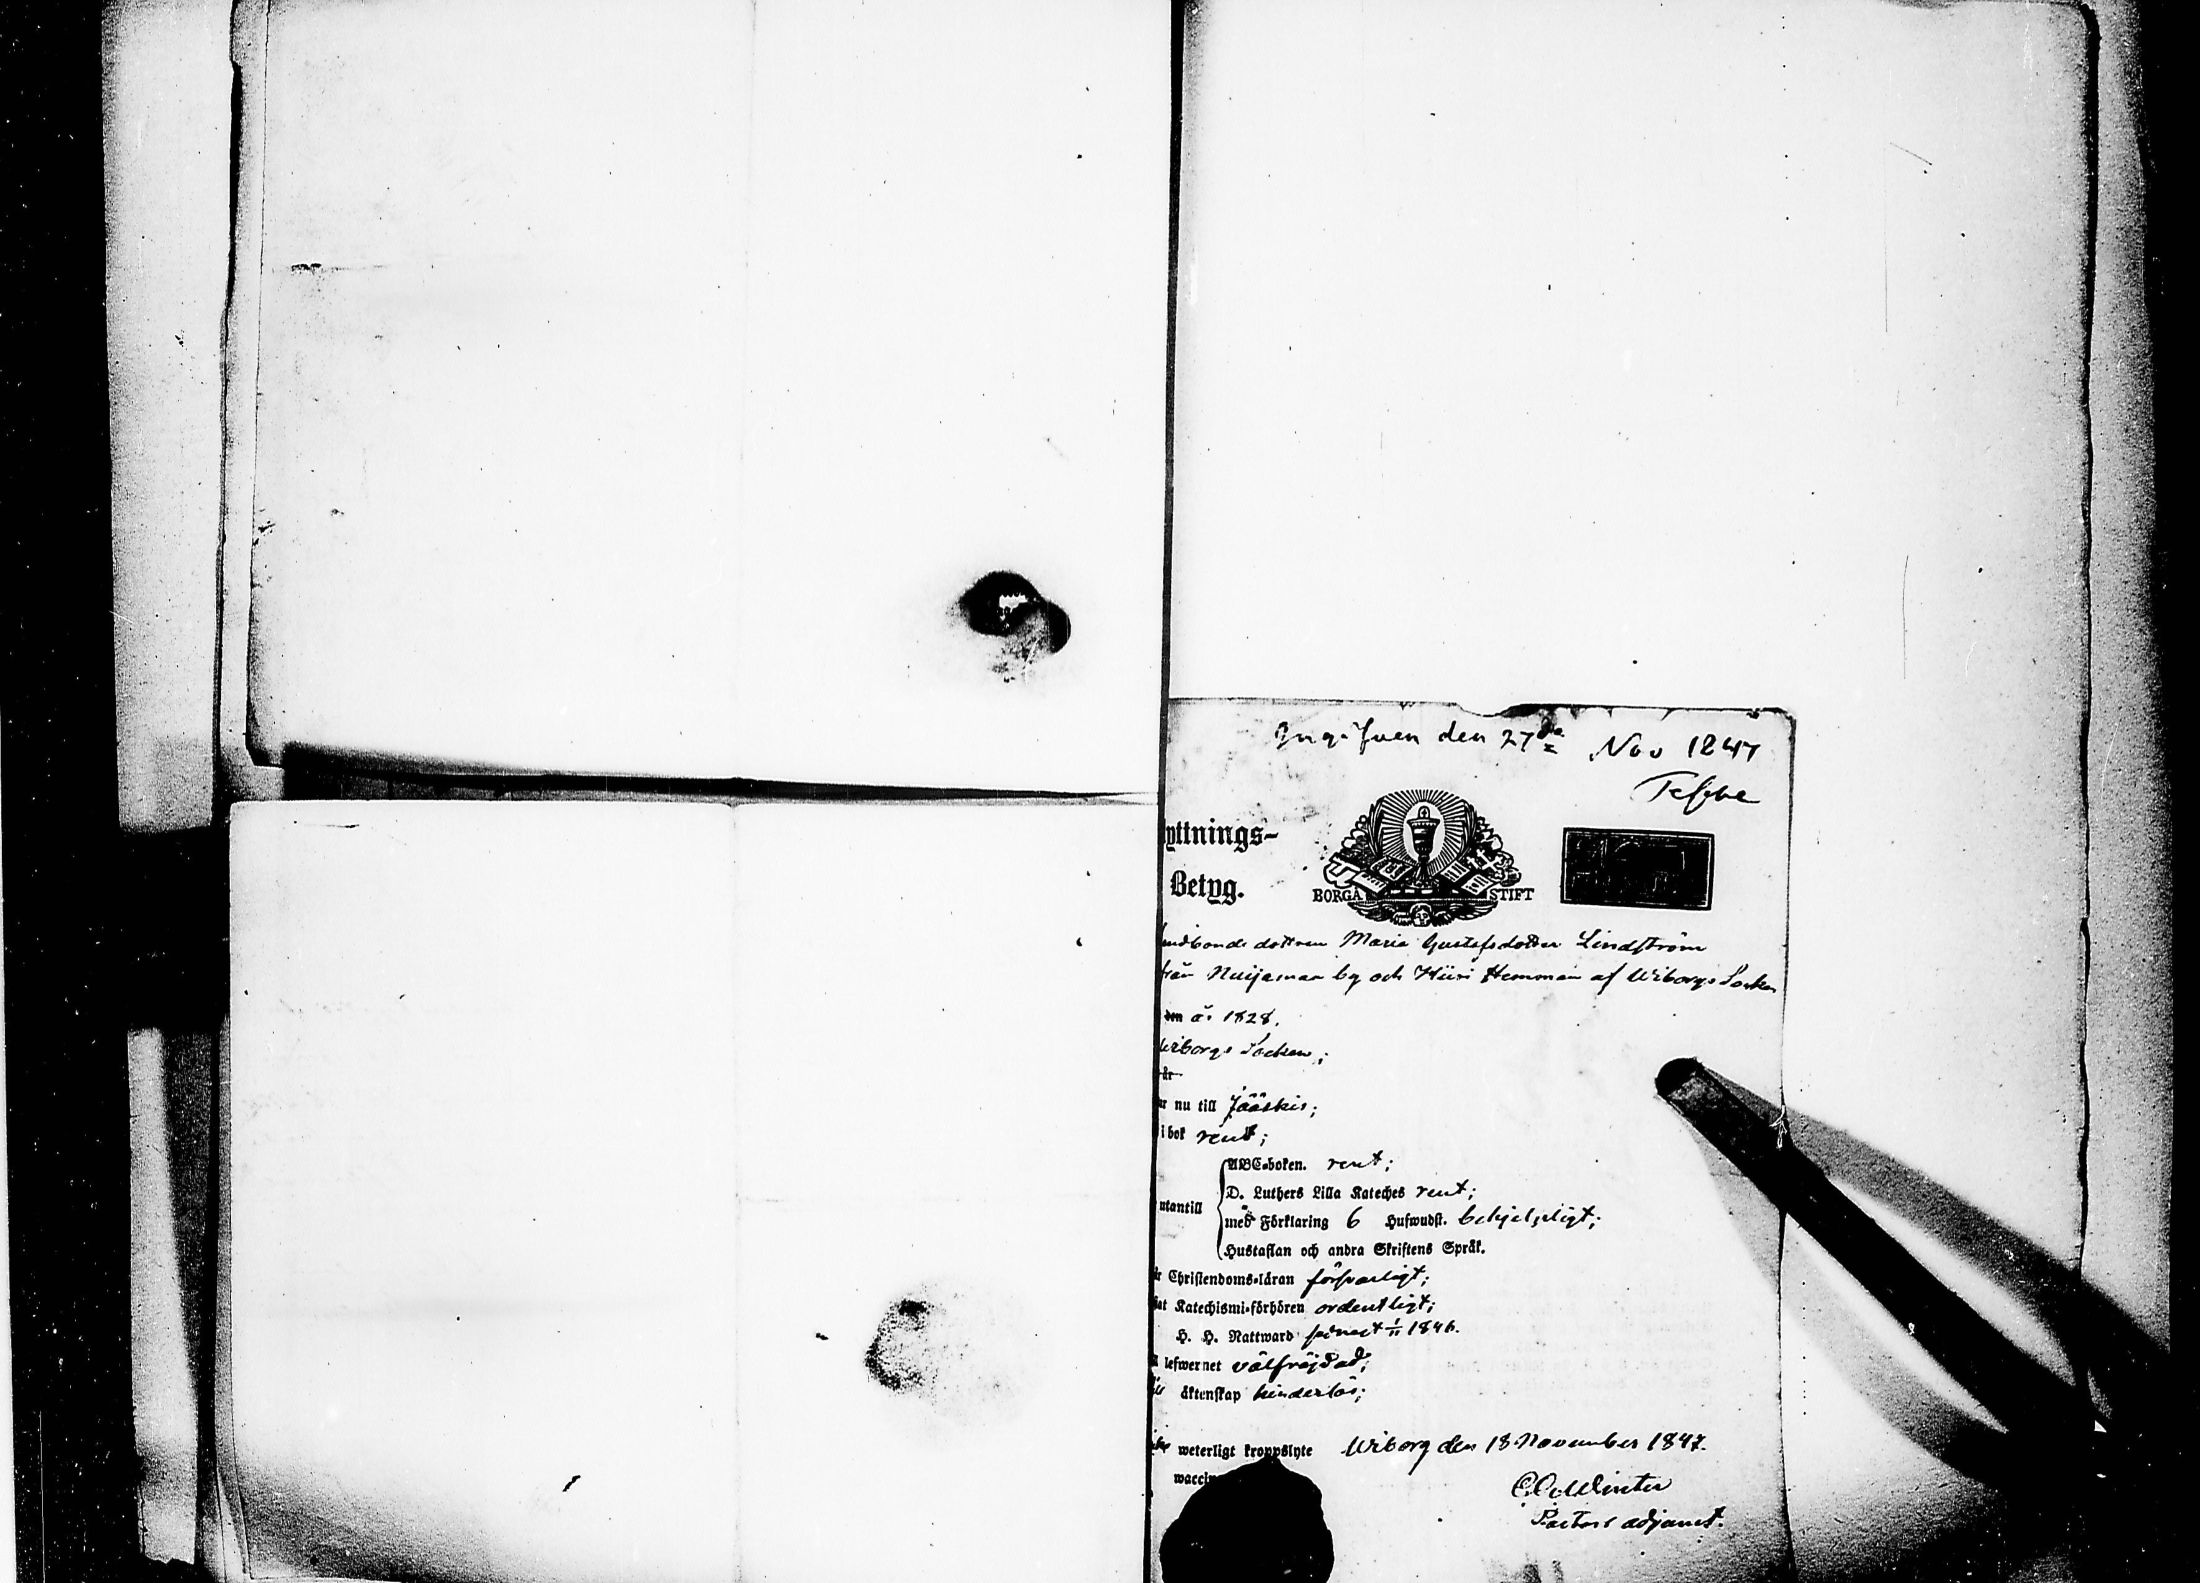 Ingifven den 27de Nov 1847
yttnings-
Betyg.
BORGÅ STIFT
dottren Maria Gustafsdotter Lindström
från Nuijamaa by och Hiiri Hemman af Wiborgs Socken
den år 1828.
Wiborgs Socken;
år
nu till Jääskis;
i bok rent;
utantill
ABC-boken. rent;
D. Luthers Lilla Kateches rent;
med Förklaring 6 Hufwudst. behjelpligt;
Hustaflan och andra Skriftens Språk.
Christendoms-läran försvarligt;
Katechismi-förhören ordentligt;
H. H. Nattward senast 1/11 1846.
lefwernet välfräjdad;
äktenskap hinderlös;
weterligt kroppslyte Wiborg den 18 November 1847.
Winter
Pastors adjunct.